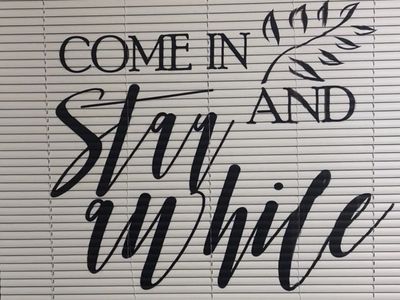 COME IN
AND
Stay
awhile